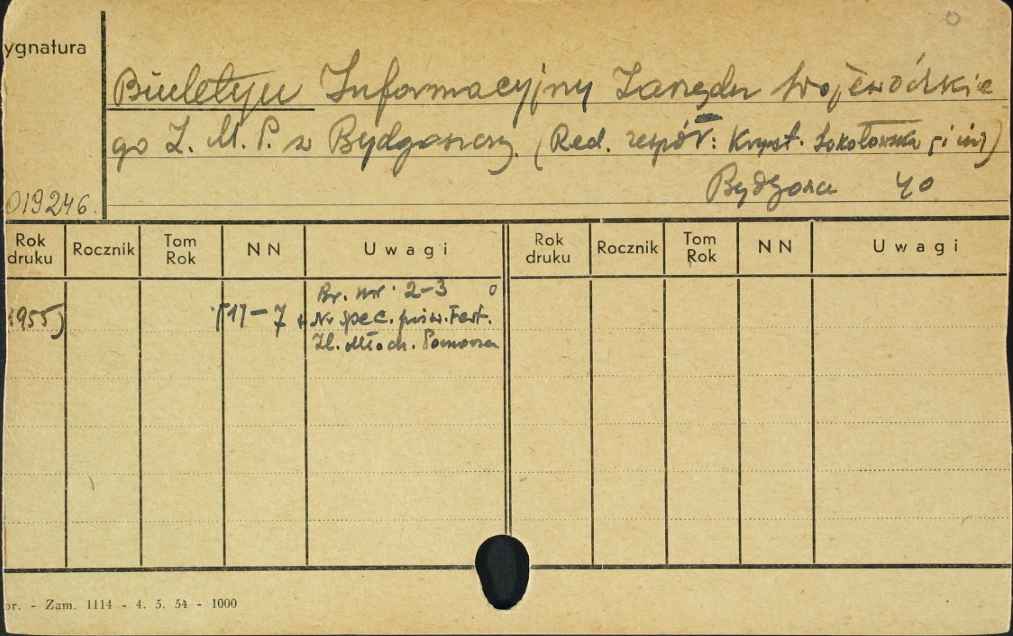 ygnatura
Biuletyn Informacyjny Zarządu Wojewódzkie
go Z. M. P. w Bydgoszczy. (Red. zespół: Kryst. Sokołowska [i in.])
Bydgoszcz 40
019246.
Rok druku Rocznik Tom Rok NN Uwagi Rok druku Rocznik Tom Rok NN Uwagi
Br. nr. 2-3
1955) [1]-7 + Nr spec. pośw. Fest.
Zl. Młodz. Pomorza
or. - Zam. 1114 - 4. 5. 54 - 1000